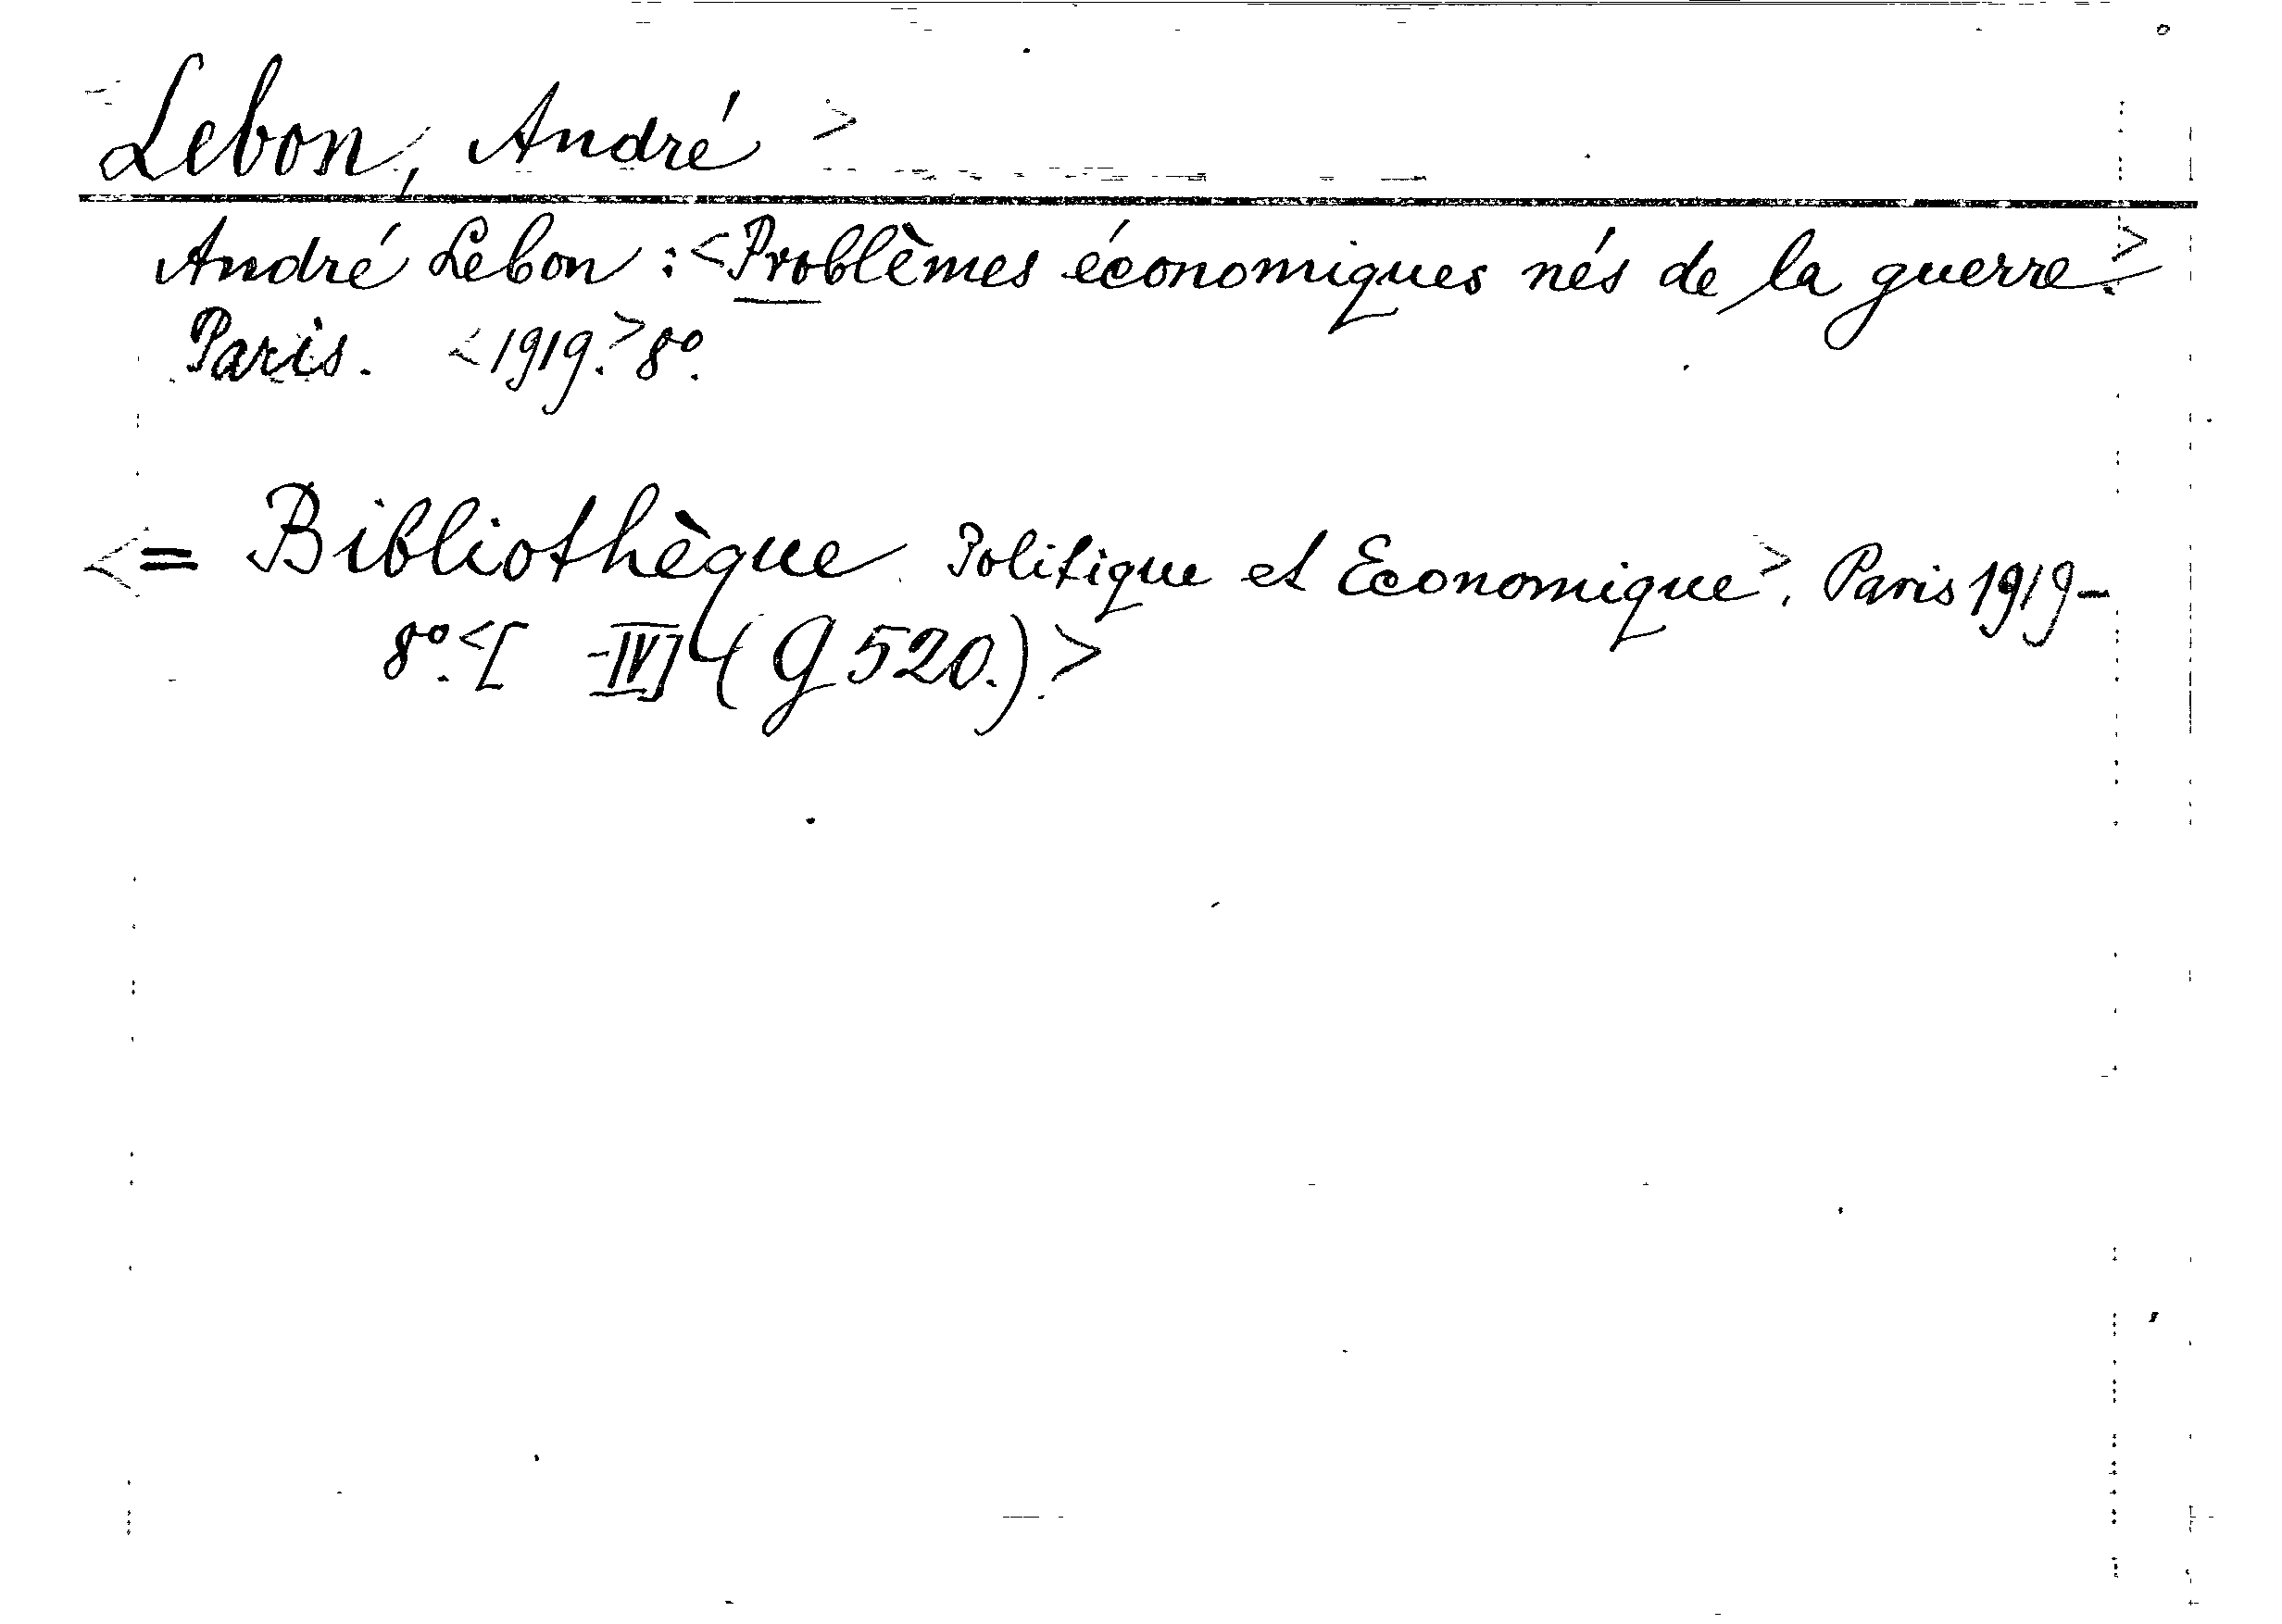 Lebon, André >
André Lebon : <Problèmes économiques nés de la guerre.>
Paris. <1919.> 8º.
<= Bibliothèque Politique et Economique>. Paris 1919-
8º. <[ -IV] (G 520.)>